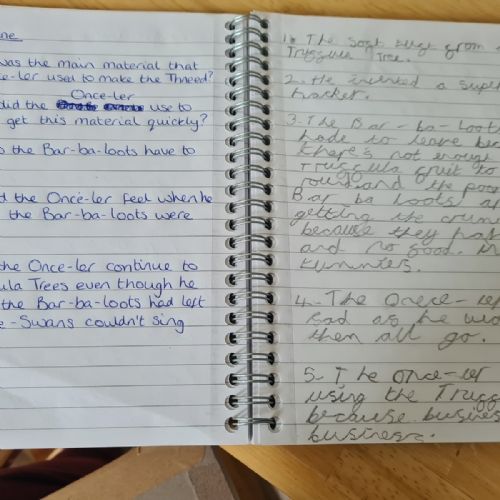 ne
was the main material that
ce-ler used to make the Thneed?
Once-ler
did the use to
get this material quickly?
o the Bar-ba-loots have to
d the Once-ler feel when he
the Bar-ba-loots were
the Once-ler continue to
ula Trees even though he
the Bar-ba-loots had left
e-Swans couldn't sing
1. The soft from
Truggula Tree.
2. He invented a super
hacker.
3. The Bar-ba-loots
hade to leave bec
there's not enough
Truggula fruit to
round and the poor
Bar ba loots ar
getting the crum
because they has
and no food. in
tummies.
4. The Onece-ler
sad as he
them all go.
5. The once-ler
using the Trugg
because business
business.